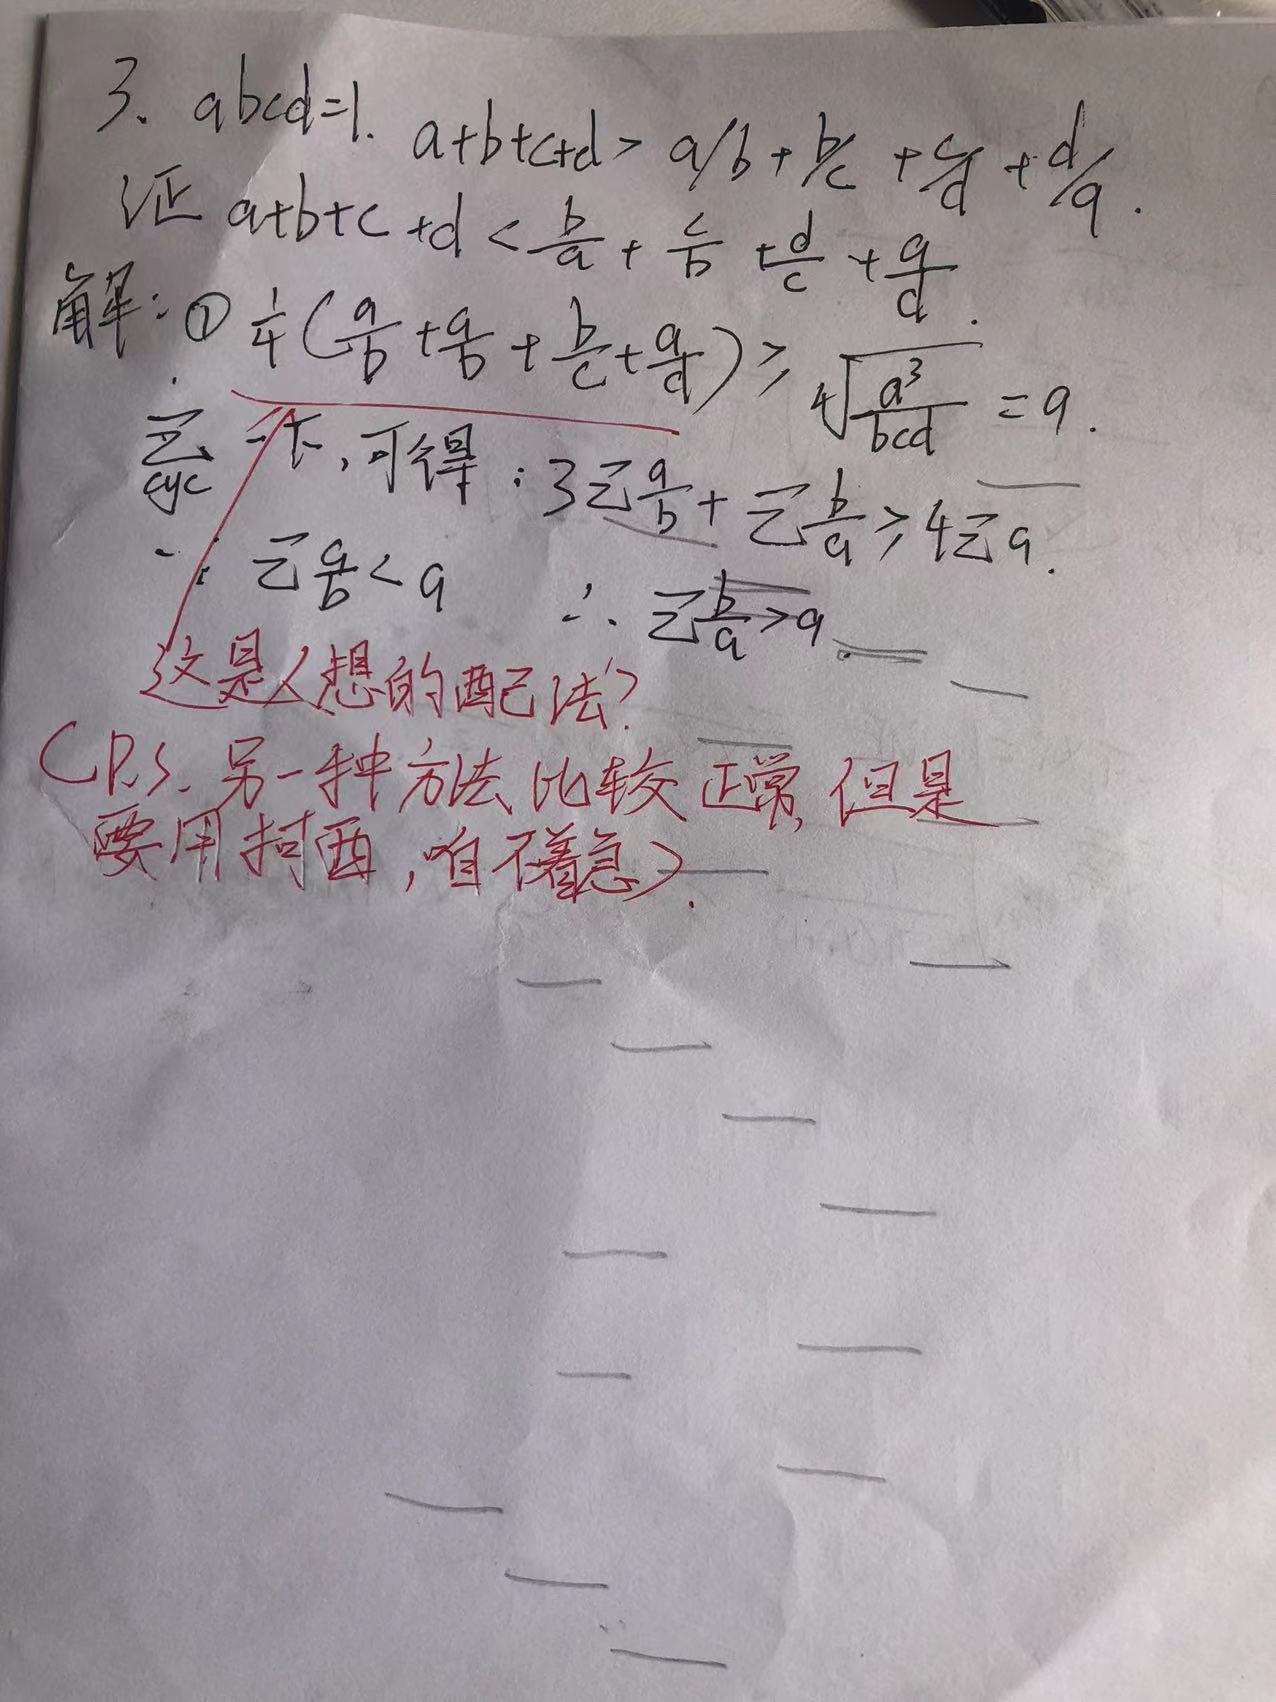 3. abcd=1. a+b+c+d > a/b + b/c + c/d + d/a.
证 a+b+c+d < b/a + c/b + d/c + a/d.
解: ① 1/4(a/b + a/b + b/c + a/d) ≥ ∜(a³/bcd) = a.
∑cyc 一下,可得: 3∑a/b + ∑b/a ≥ 4∑a.
∵ ∑a/b < a ∴ ∑b/a > a.
这是人想的配法?
(P.S. 另一种方法比较正常,但是
要用柯西,咱不着急).